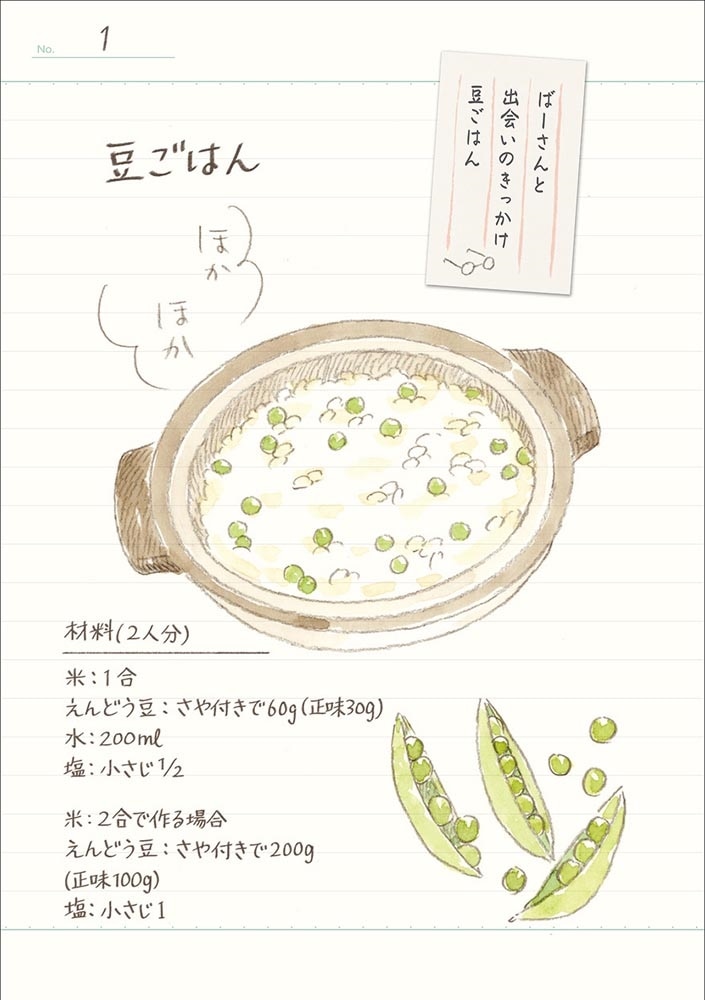 No. 1
ばーさんと
出会いのきっかけ
豆ごはん
豆ごはん
ほか
ほか
材料(2人分)
米:1合
えんどう豆:さや付きで60g(正味30g)
水:200ml
塩:小さじ1/2
米:2合で作る場合
えんどう豆:さや付きで200g
(正味100g)
塩:小さじ1